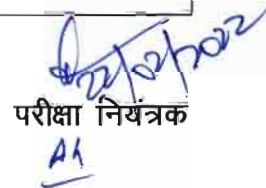 22/02/2022
परीक्षा नियंत्रक